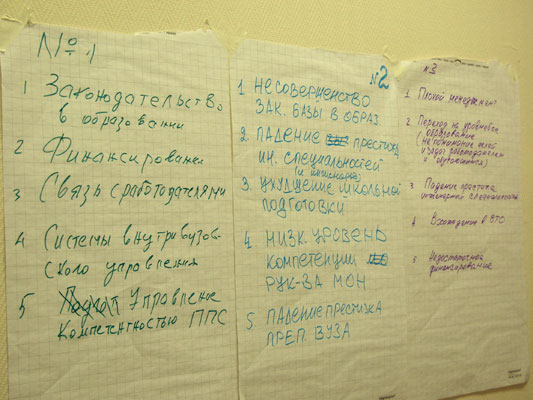 №1
1 Законодательство
в образовании
2 Финансирование
3 Связь с работодателями
4 Системы внутривузов-
ского управления
5 Управление
Компетентностью ППС
№2
1 НЕСОВЕРШЕНСТВО
ЗАК. БАЗЫ В ОБРАЗ
2. ПАДЕНИЕ ПРЕСТИЖА
ИН. СПЕЦИАЛЬНОСТЕЙ
3. УХУДШЕНИЕ ШКОЛЬНОЙ
ПОДГОТОВКИ
4 НИЗК. УРОВЕНЬ
КОМПЕТЕНЦИИ
РУК-ВА МОН
5 ПАДЕНИЕ ПРЕСТИЖА
ПРЕП. ВУЗА
№3
1 Плохой менеджмент
2 Переход на уровневое
образование
(непонимание
работодателями
и обучающимися)
3 Падение престижа
инженерной специальности
4 Вхождение в ВТО
5 Недостаточное
финансирование